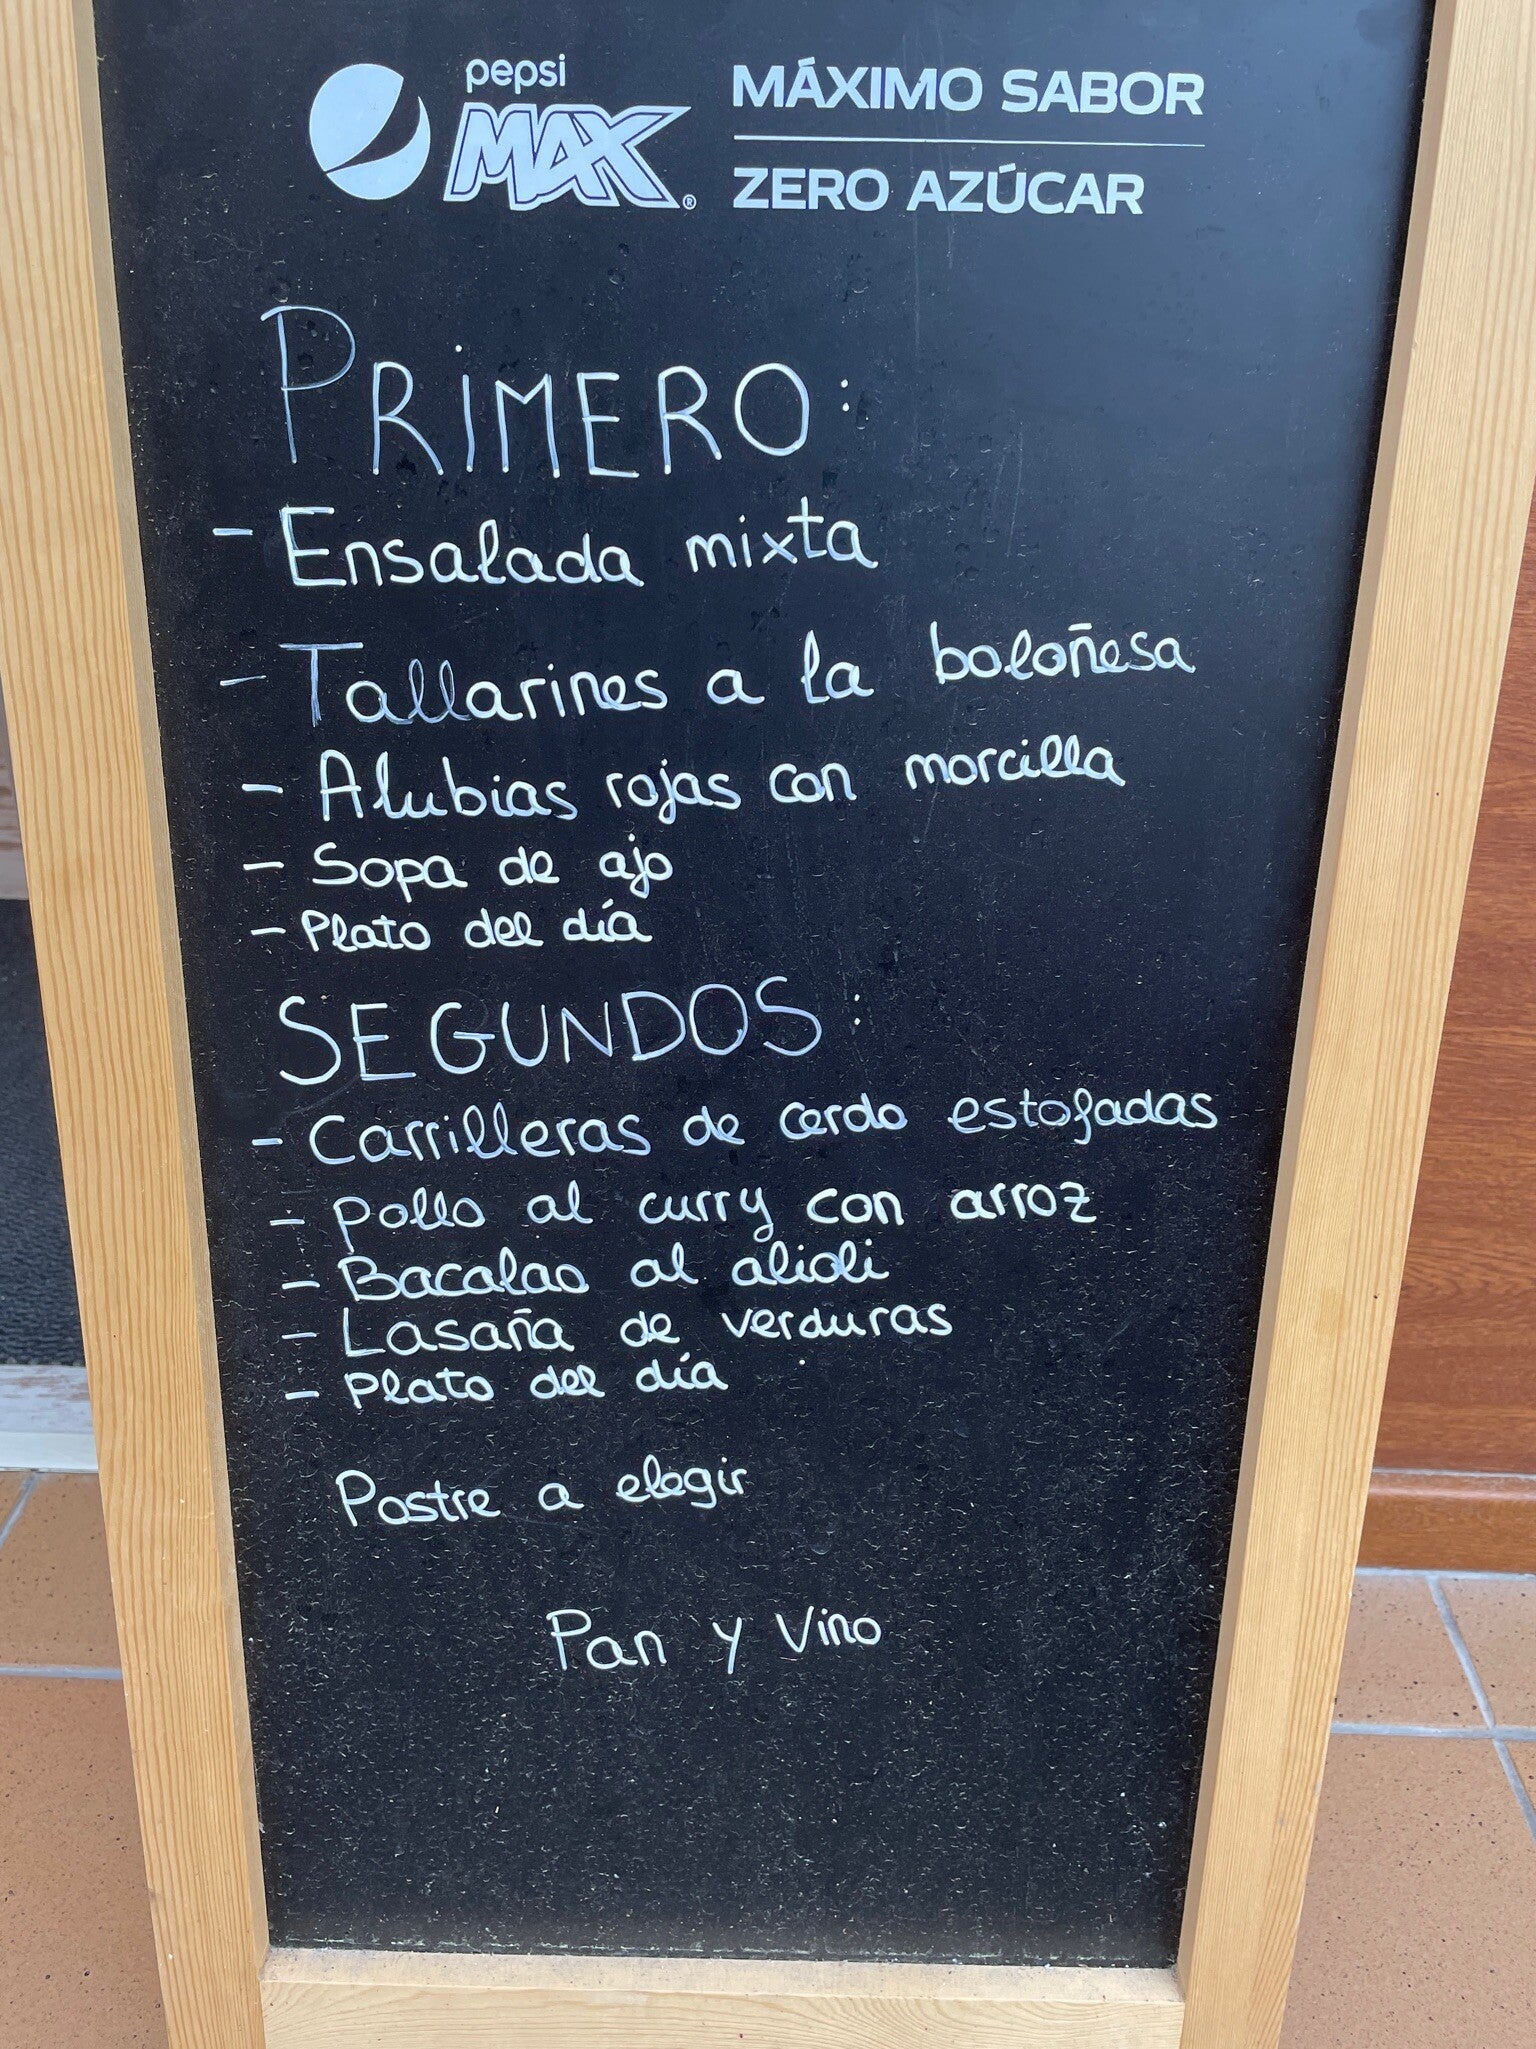 pepsi
MAX®
MÁXIMO SABOR
ZERO AZÚCAR
PRIMERO:
- Ensalada mixta
- Tallarines a la boloñesa
- Alubias rojas con morcilla
- Sopa de ajo
- Plato del día
SEGUNDOS:
- Carrilleras de cerdo estofadas
- pollo al curry con arroz
- Bacalao al alioli
- Lasaña de verduras
- Plato del día
Postre a elegir
Pan y Vino